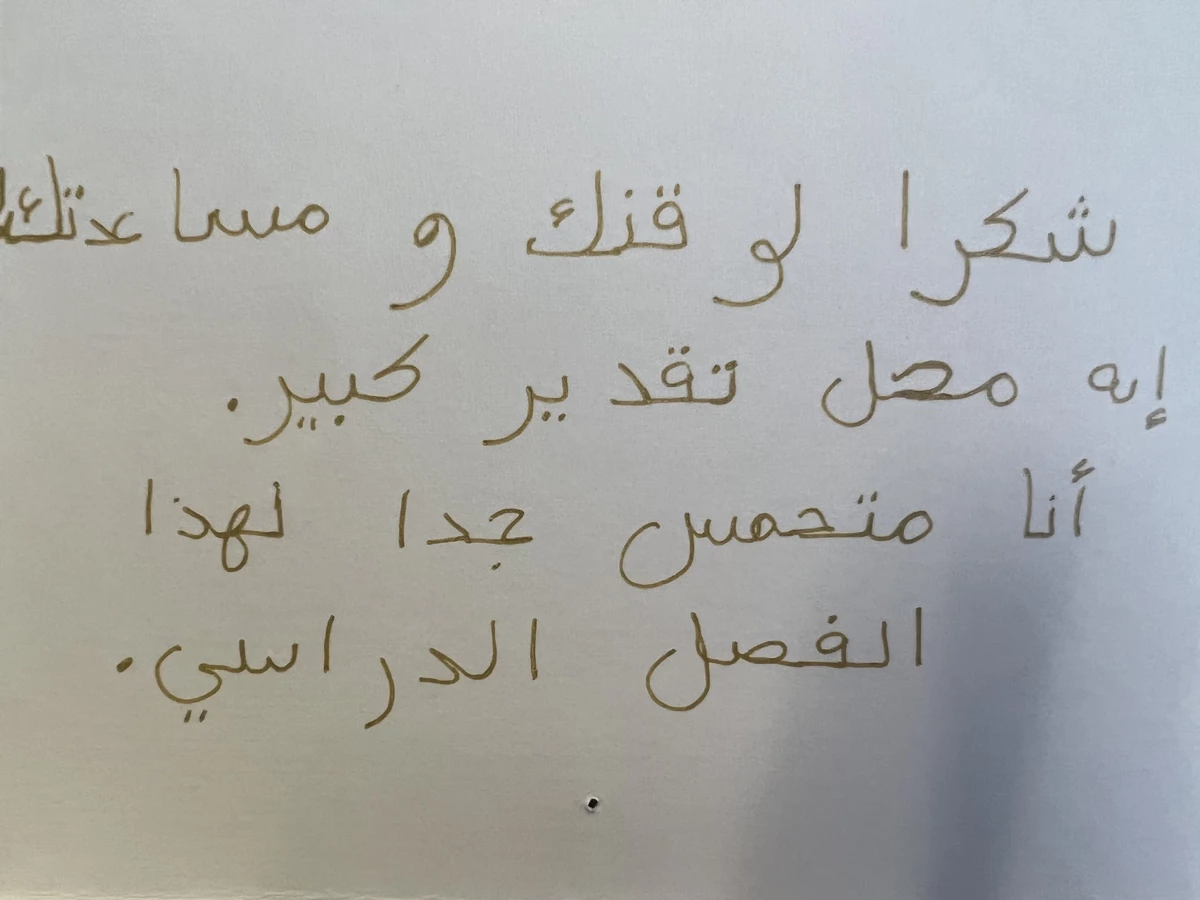 شكرا لوقتك و مساعدتك
إنه محل تقدير كبير.
أنا متحمس جدا لهذا
الفصل الدراسي.